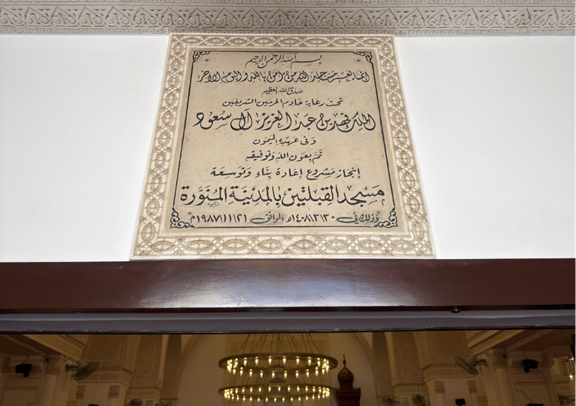 بسم الله الرحمن الرحيم
إنما يعمر مساجد الله من آمن بالله واليوم الآخر
صدق الله العظيم
تحت رعاية خادم الحرمين الشريفين
الملك فهد بن عبد العزيز آل سعود
وفي عهده الميمون
تم بعون الله وتوفيقه
إنجاز مشروع إعادة بناء وتوسعة
مسجد القبلتين بالمدينة المنورة
وذلك في ١٤٠٨/٣/٣٠هـ الموافق ١٩٨٧/١١/٢١م